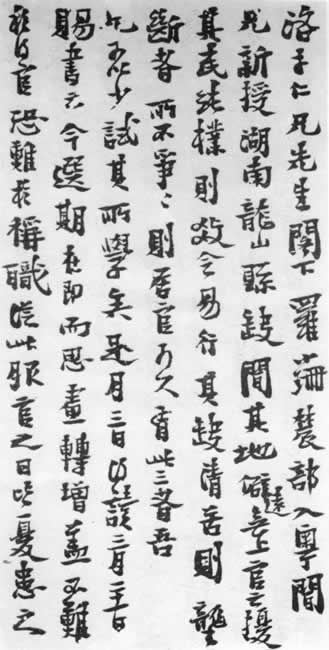 浮子仁兄先生閣下羅珊農部入粵間
兄新授湖南龍山縣缺間其地僻遠無上官之擾
其民純樸則政令易行其缺清苦則
斷者所不爭〻則居官可久有此三者吾
兄可以少試其所學矣是月三日得讀二月二十日
賜書云今選期在即而思晝轉增蓋不難
於得官恐難於稱職從此服官之日皆憂患之